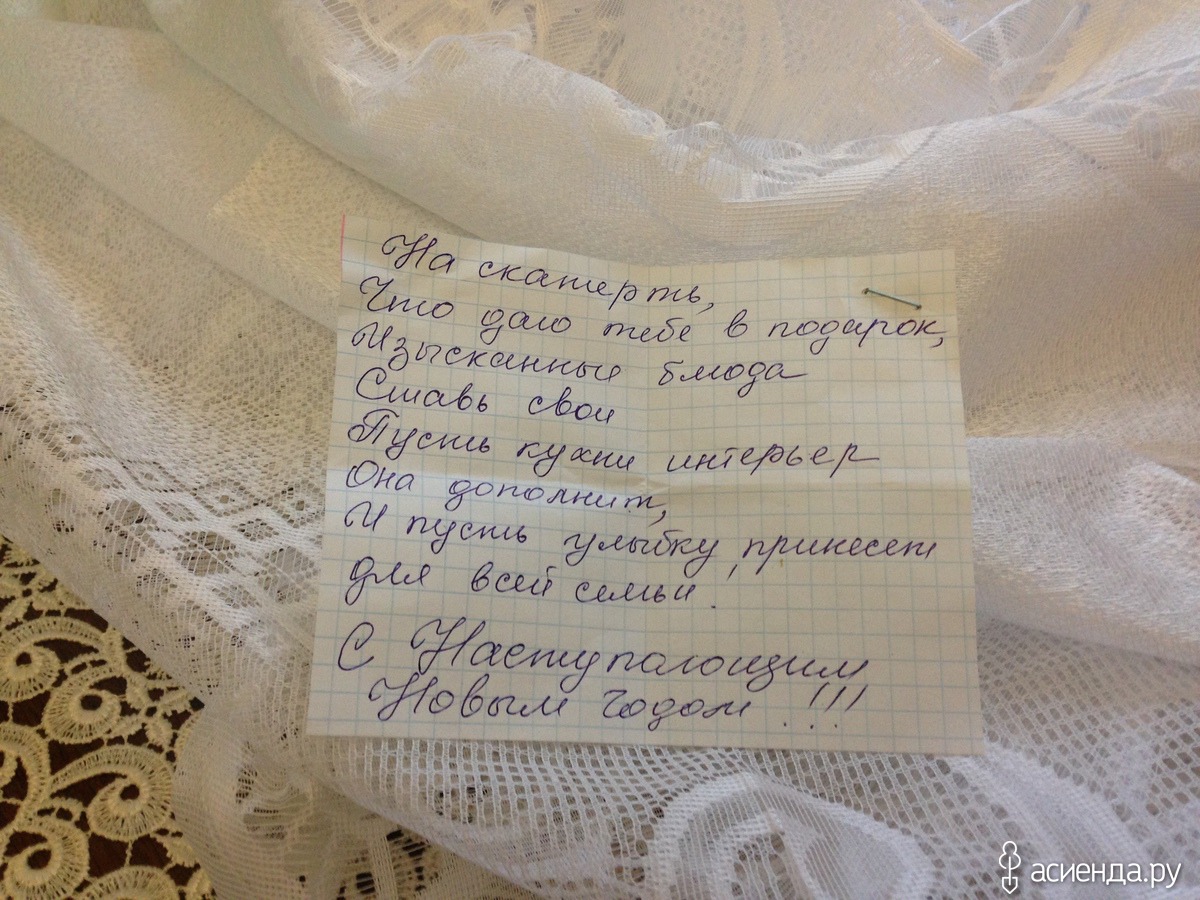 На скатерть,
Что даю тебе в подарок,
Изысканные блюда
Ставь свои
Пусть кухни интерьер
Она дополнит,
И пусть улыбку принесет
для всей семьи!
С Наступающим
Новым годом!!!
асиенда.ру